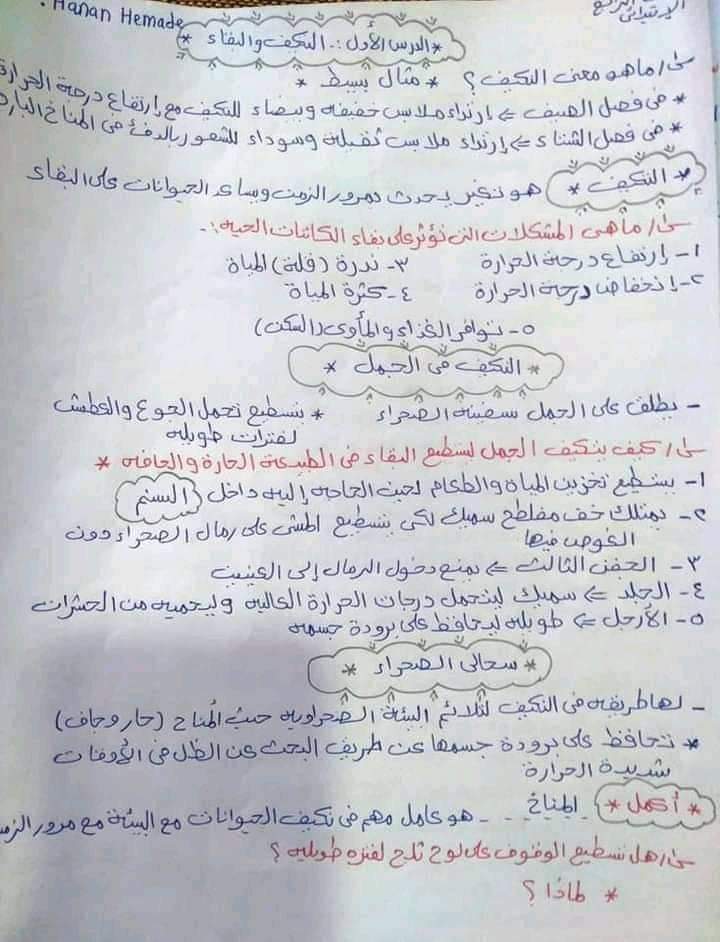 Hanan Hemade.
الرابع الإبتدائى
* الدرس الأول :. التكيف والبقاء *
س/ ما هو معنى التكيف ؟ * مثال بسيط *
* فى فصل الصيف ⇐ إرتداء ملابس خفيفه وبيضاء للتكيف مع إرتفاع درجة الحرارة
* فى فصل الشتاء ⇐ إرتداء ملابس ثقيله وسوداء للشعور بالدفئ فى المناخ البارد
* التكيف * هو تغير يحدث بمرور الزمن ويساعد الحيوانات على البقاء
س/ ما هى المشكلات التى تؤثر على بقاء الكائنات الحيه :.
١- إرتفاع درجة الحرارة ٣- ندرة (قلة) المياة
٢- إنخفاض درجة الحرارة ٤- كثرة المياة
٥- توافر الغذاء والمأوى (السكن)
التكيف فى الجمل *
- يطلق على الجمل سفينة الصحراء * يستطيع تحمل الجوع والعطش
لفترات طويله
س/ كيف يتكيف الجمل ليستطيع البقاء فى الطبيعة الحارة والجافه *
١- يستطيع تخزين المياة والطعام لحين الحاجه إليه داخل السنم
٢- يمتلك خف مفلطح سميك لكى يستطيع المشى على رمال الصحراء دون
الغوص فيها
٣- الجفن الثالث ⇐ يمنع دخول الرمال إلى العينين
٤- الجلد ⇐ سميك ليتحمل درجات الحرارة العاليه وليحميه من الحشرات
٥- الأرجل ⇐ طويله ليحافظ على برودة جسمه
* سحالى الصحراء *
- لها طريقه فى التكيف لتلائم البيئة الصحراويه حيث المُناخ (حار وجاف)
* تحافظ على برودة جسمها عن طريق البحث عن الظل فى الأوقات
شديدة الحرارة
* أكمل * .. المناخ .. هو عامل مهم فى تكيف الحيوانات مع البيئة مع مرور الزمن
س/ هل تستطيع الوقوف على لوح ثلج لفتره طويله ؟
* لماذا ؟